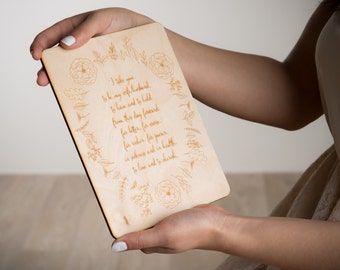 I take you
to be my husband
to have and to hold
from this day forward
for better, for worse
for richer, for poorer
in sickness and in health
to love and to cherish